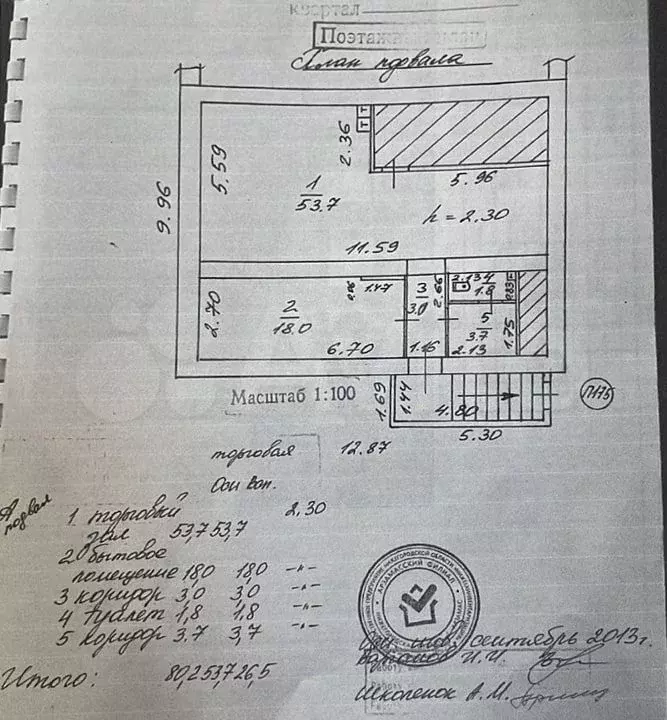 квартал
Поэтаж
План подвала
Т
Т
2.36
5.59
9.96
1
53.7
5.96
h = 2.30
11.59
2.70
2
18.0
1.47
6.70
3
3.0
2.66
1.16
2.13
4
1.8
0.83
5
3.7
2.13
1.75
Масштаб 1:100
1.69
1.44
4.80
5.30
П175
торговая 12.87
Осн Всп.
А подвал
1 торговый 2,30
зал 53,7 53,7
2 бытовое
помещение 18,0 18,0 -"-
3 коридор 3,0 3,0 -"-
4 туалет 1,8 1,8 -"-
5 коридор 3,7 3,7 -"-
Итого: 80,2 53,7 26,5
АРЗАМАССКИЙ ФИЛИАЛ
сентябрь 2013г.
И.И.
Школенок А.М.